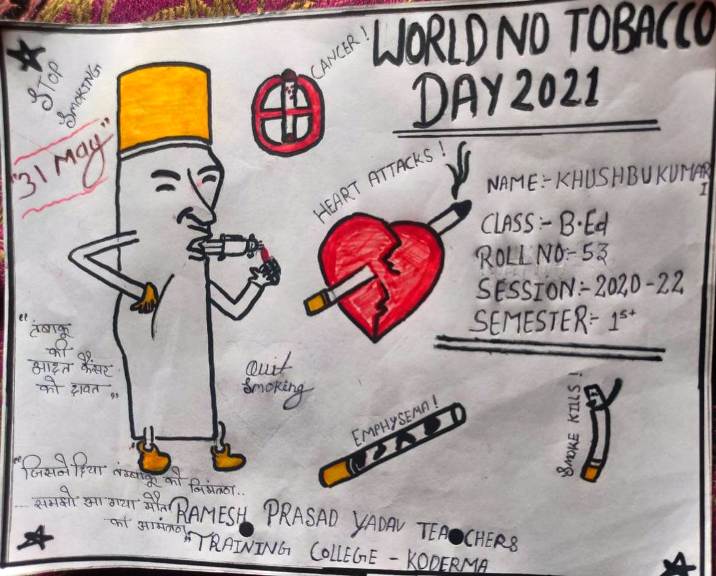 WORLD NO TOBACCO
DAY 2021
STOP
SMOKING
"31 May"
CANCER!
HEART ATTACKS!
NAME:- KHUSHBU KUMARI
CLASS:- B.Ed
ROLL NO:- 53
SESSION:- 2020-22
SEMESTER:- 1st
"तंबाकू
की
आदत कैंसर
को दावत"
Quit
Smoking
EMPHYSEMA!
SMOKE KILLS!
"जिसने दिया तंम्बाकू को निमंत्रण..
... समझो आ गया मौत
का आमंत्रण"
RAMESH PRASAD YADAV TEACHERS
TRAINING COLLEGE - KODERMA